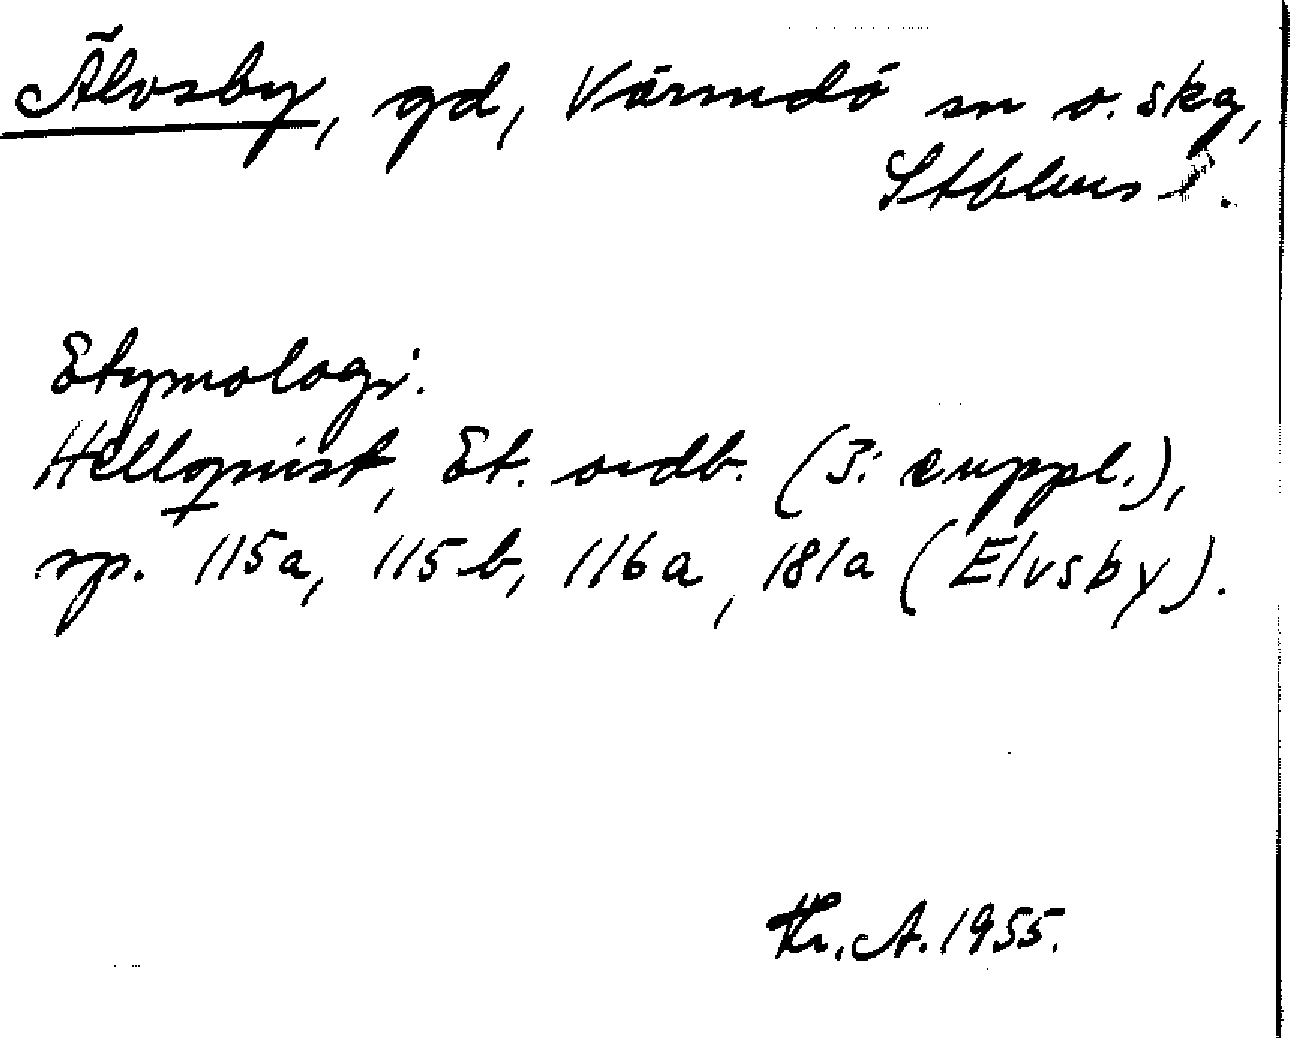 Älvsby, gd, Värmdö sn o. skg,
Sthlms l.
Etymologi.
Hellquist, Et. ordb. (3: e uppl.),
sp. 115a, 115b, 116a, 181a (Elvsby).
A. 1955.